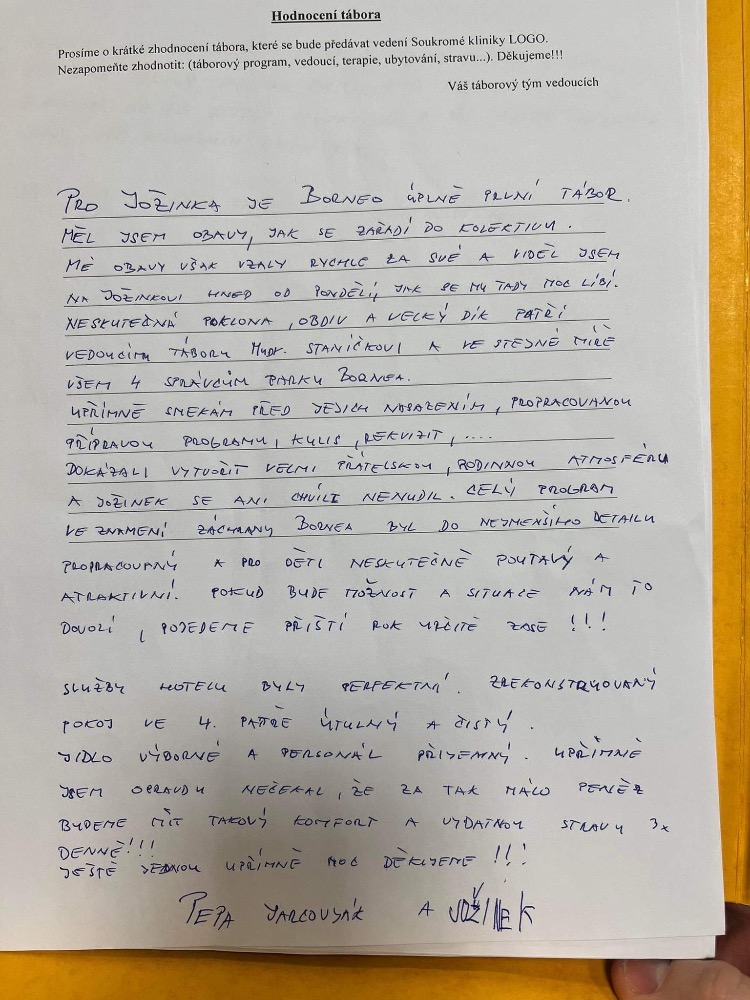 Hodnocení tábora
Prosíme o krátké zhodnocení tábora, které se bude předávat vedení Soukromé kliniky LOGO.
Nezapomeňte zhodnotit: (táborový program, vedoucí, terapie, ubytování, stravu...). Děkujeme!!!
Váš táborový tým vedoucích
PRO JOŽINKA JE BORNEO ÚPLNĚ PRVNÍ TÁBOR.
MĚL JSEM OBAVY, JAK SE ZAŘADÍ DO KOLEKTIVU.
MÉ OBAVY VŠAK VZALY RYCHLE ZA SVÉ A VIDĚL JSEM
NA JOŽINKOVI HNED OD PONDĚLÍ, JAK SE MU TADY MOC LÍBÍ.
NESKUTEČNÁ POKLONA, OBDIV A VELKÝ DÍK PATŘÍ
VEDOUCÍMU TÁBORU MUDR. STANÍČKOVI A VE STEJNÉ MÍŘE
VŠEM 4 SPRÁVCŮM PARKU BORNEA.
UPŘÍMNĚ SMEKÁM PŘED JEJICH NASAZENÍM, PROPRACOVANOU
PŘÍPRAVOU PROGRAMU, KULIS, REKVIZIT, ....
DOKÁZALI VYTVOŘIT VELMI PŘÁTELSKOU, RODINNOU ATMOSFÉRU
A JOŽINEK SE ANI CHVÍLI NENUDIL. CELÝ PROGRAM
VE ZNAMENÍ ZÁCHRANY BORNEA BYL DO NEJMENŠÍHO DETAILU
PROPRACOVANÝ A PRO DĚTI NESKUTEČNĚ POUTAVÝ A
ATRAKTIVNÍ. POKUD BUDE MOŽNOST A SITUACE NÁM TO
DOVOLÍ, POJEDEME PŘÍŠTÍ ROK URČITĚ ZASE !!!
SLUŽBY HOTELU BYLY PERFEKTNÍ. ZREKONSTRUOVANÝ
POKOJ VE 4. PATŘE ÚTULNÝ A ČISTÝ.
JÍDLO VÝBORNÉ A PERSONÁL PŘÍJEMNÝ. UPŘÍMNĚ
JSEM OPRAVDU NEČEKAL, ŽE ZA TAK MÁLO PENĚZ
BUDEME MÍT TAKOVÝ KOMFORT A VYDATNOU STRAVU 3x
DENNĚ!!!
JEŠTĚ JEDNOU UPŘÍMNĚ MOC DĚKUJEME !!!
PEPA A JOŽINEK